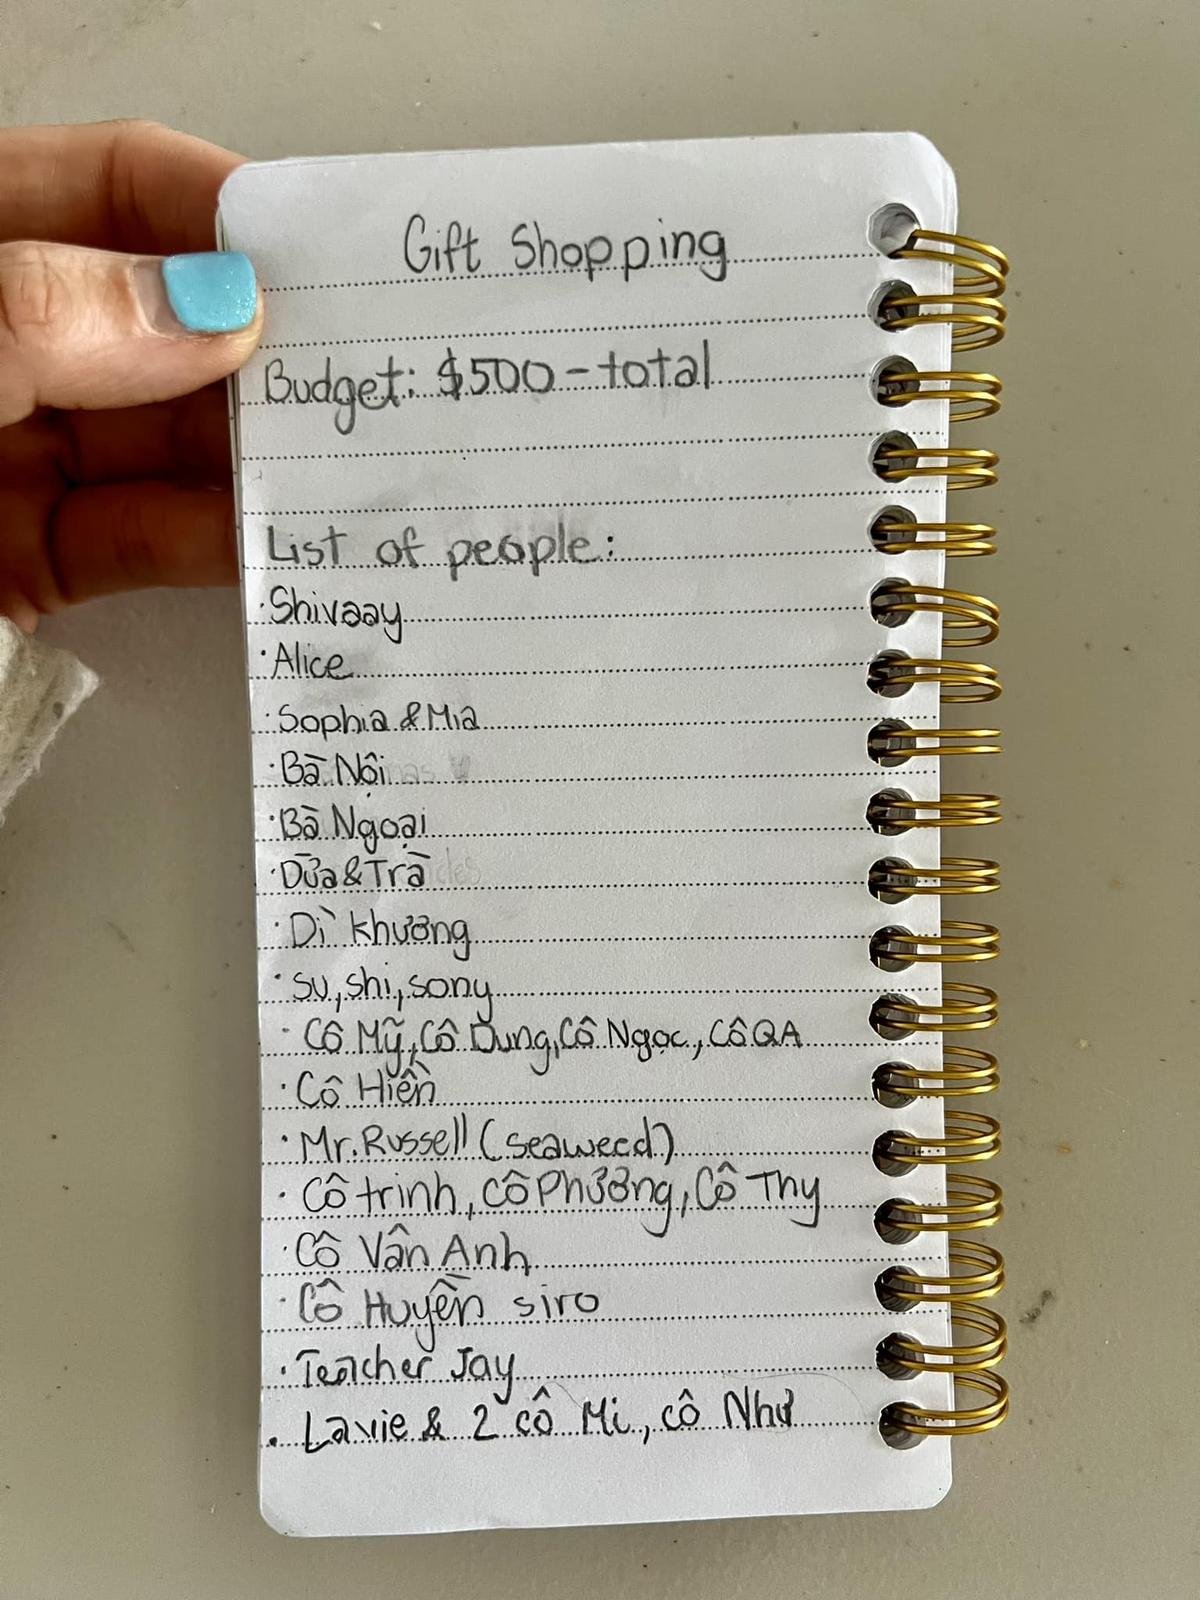 Gift Shopping
Budget: $500 - total
List of people:
· Shivaay
· Alice
· Sophia & Mia
· Bà Nội
· Bà Ngoại
· Dừa & Trà
· Dì Khương
· su, shi, sony
· Cô Mỹ, Cô Dung, Cô Ngọc, Cô QA
· Cô Hiền
· Mr. Russell (seaweed)
· Cô trinh, cô Phương, Cô Thy
· Cô Vân Anh
· Cô Huyền siro
· Teacher Jay
· Lavie & 2 cô Mi, cô Như